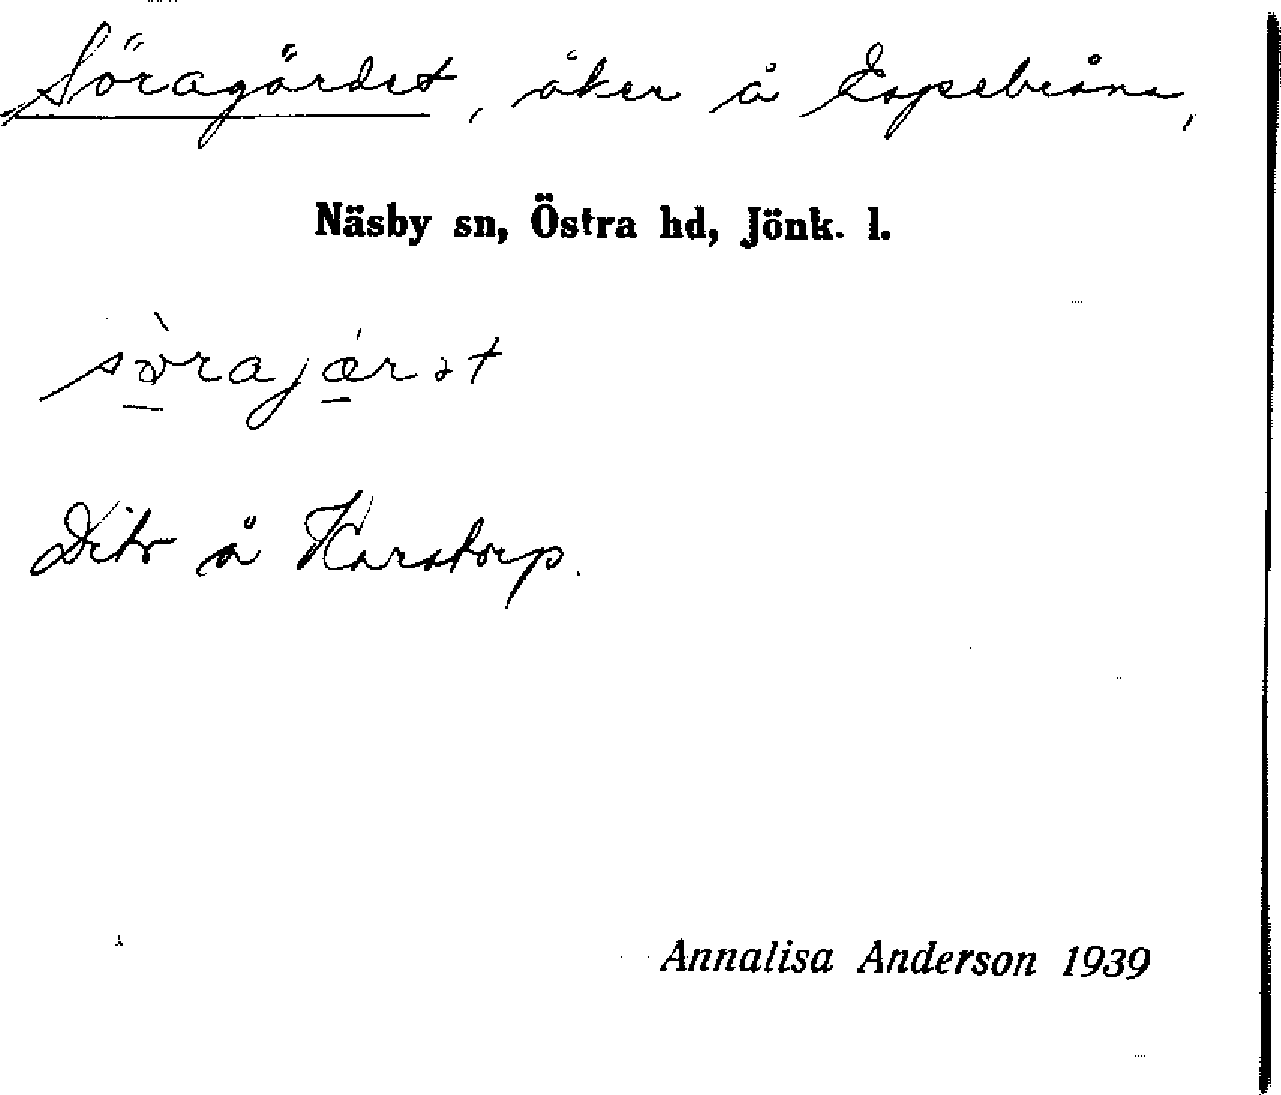 Söragärdet, åker å Espebråna,
Näsby sn, Östra hd, Jönk. l.
Dito å Karstorp.
Annalisa Anderson 1939